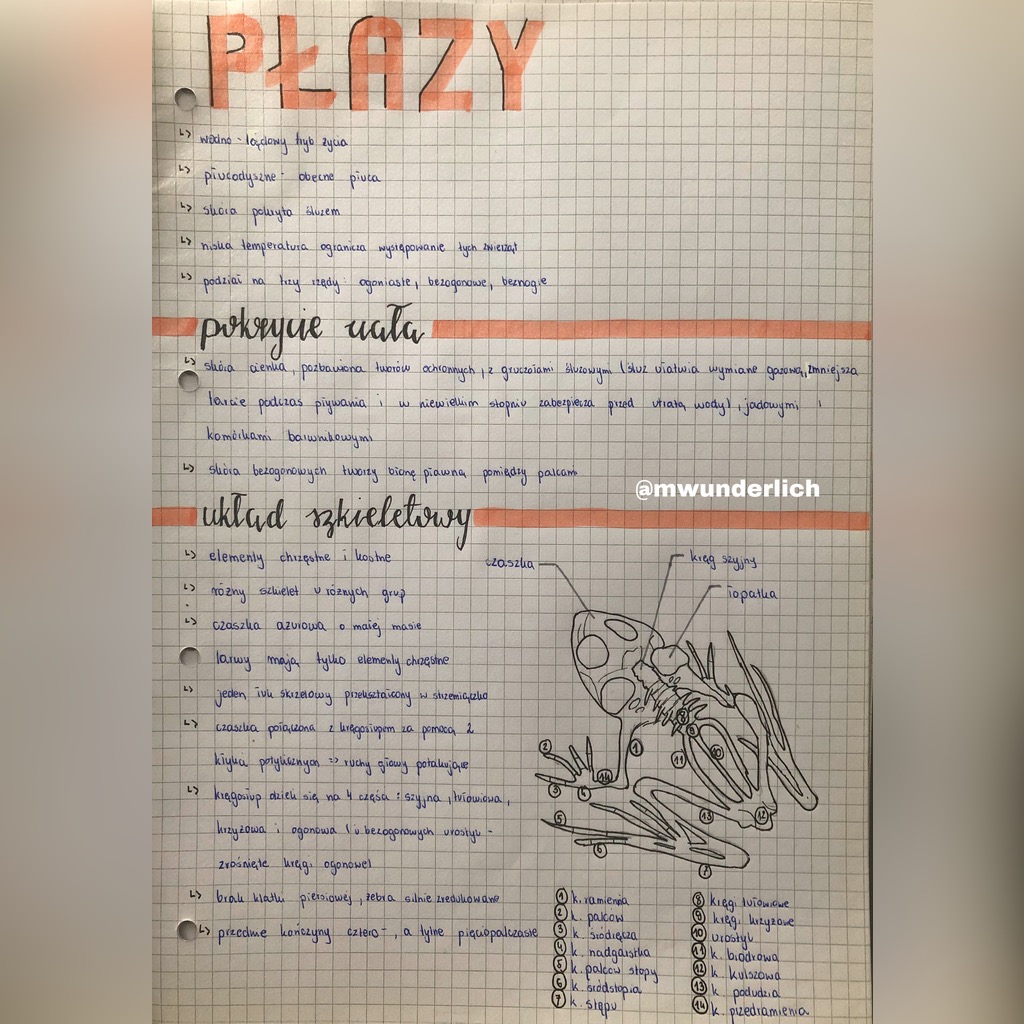 PŁAZY
↳ wodno-lądowy tryb życia
↳ płucodyszne - obecne płuca
↳ skóra pokryta śluzem
↳ niska temperatura ogranicza występowanie tych zwierząt
↳ podział na trzy rzędy: ogoniaste, bezogonowe, beznogie
pokrycie ciała
↳ skóra cienka, pozbawiona tworów ochronnych, z gruczołami śluzowymi (śluz ułatwia wymianę gazową, zmniejsza
tarcie podczas pływania i w niewielkim stopniu zabezpiecza przed utratą wody), jadowymi i
komórkami barwnikowymi
↳ skóra bezogonowych tworzy błonę pławną pomiędzy palcami
@mwunderlich
układ szkieletowy
↳ elementy chrzęstne i kostne
↳ różny szkielet u różnych grup
↳ czaszka ażurowa o małej masie
larwy mają tylko elementy chrzęstne
↳ jeden łuk skrzelowy przekształcony w strzemiączko
↳ czaszka połączona z kręgosłupem za pomocą 2
kłykci potylicznych => ruchy głowy potakujące
↳ kręgosłup dzieli się na 4 części: szyjna, tułowiowa,
krzyżowa i ogonowa (u bezogonowych urostyl -
zrośnięte kręgi ogonowe)
↳ brak klatki piersiowej, żebra silnie zredukowane
↳ przednie kończyny cztero-, a tylne pięciopalczaste
czaszka
kręg szyjny
łopatka
8
9
1
11
10
2
14
3
4
13
12
5
6
7
1 k. ramienia
2 k. palców
3 k. śródręcza
4 k. nadgarstka
5 k. palców stopy
6 k. śródstopia
7 k. stępu
8 kręgi tułowiowe
9 kręgi krzyżowe
10 urostyl
11 k. biodrowa
12 k. kulszowa
13 k. podudzia
14 k. przedramienia